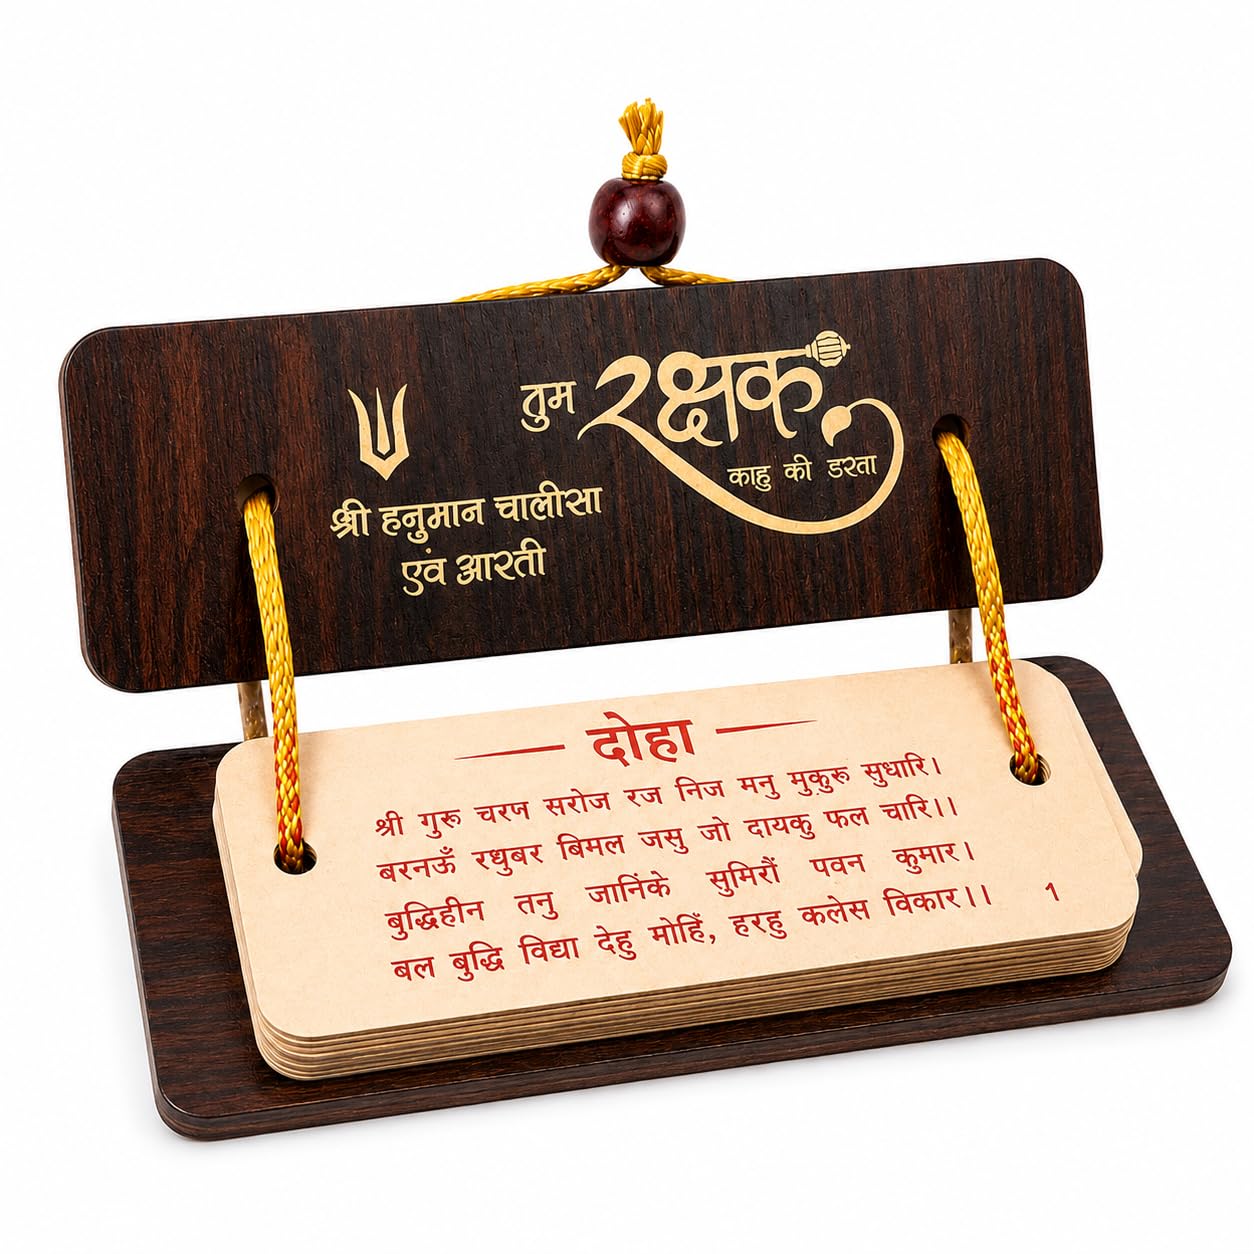 तुम रक्षक
काहु की डरता
श्री हनुमान चालीसा
एवं आरती
दोहा
श्री गुरू चरण सरोज रज निज मनु मुकुरू सुधारि।
बरनऊँ रधुबर बिमल जसु जो दायकु फल चारि।।
बुद्धिहीन तनु जानिंके सुमिरौं पवन कुमार।
बल बुद्धि विद्या देहु मोहिं, हरहु कलेस विकार।। 1